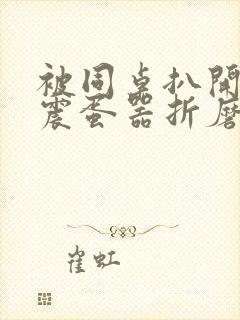 被同桌扒開
震蛋器折磨
崔虹